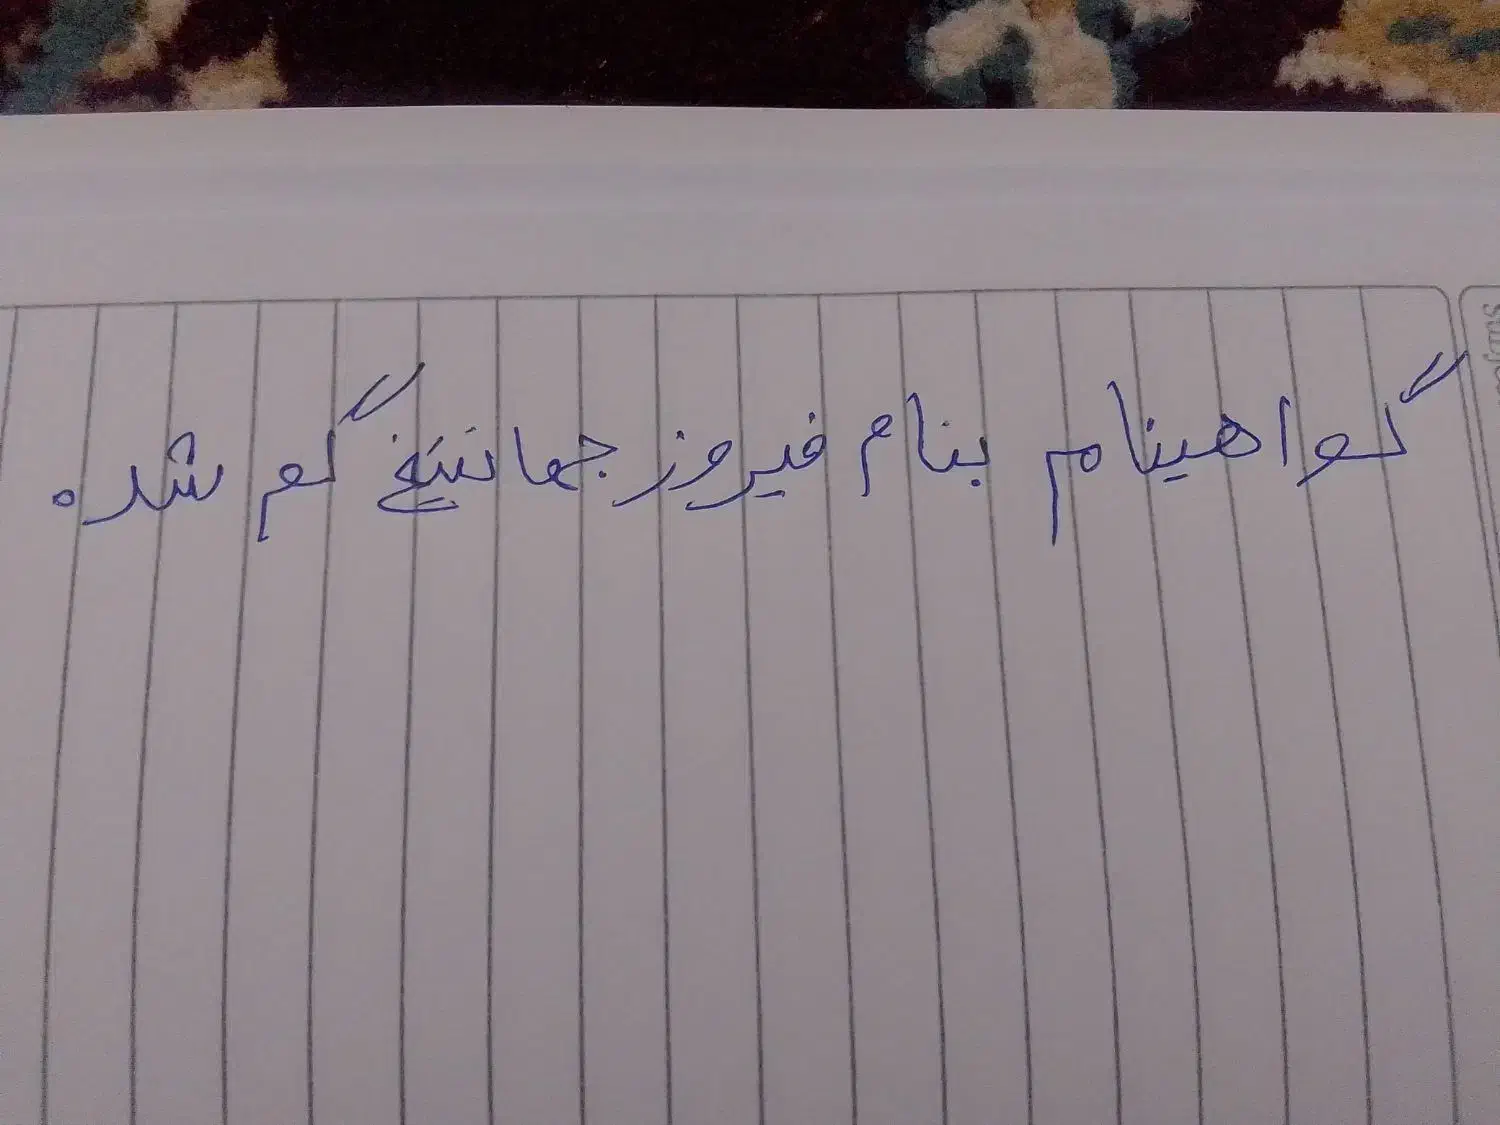 گواهینام بنام فیروز جهانتیغ گم شد.